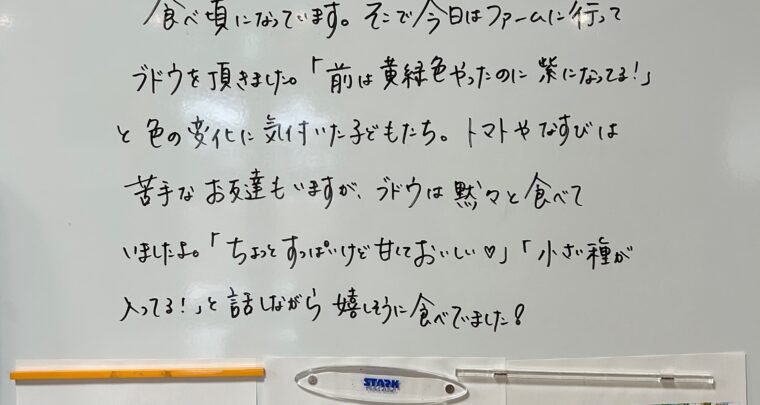 食べ頃になっています。そこで今日はファームに行って
ブドウを頂きました。「前は黄緑色やったのに紫になってる!」
と色の変化に気付いた子どもたち。トマトやなすびは
苦手なお友達もいますが、ブドウは黙々と食べて
いましたよ。「ちょっとすっぱいけど甘くておいしい♡」「小さい種が
入ってる!」と話しながら嬉しそうに食べていました!
STARK